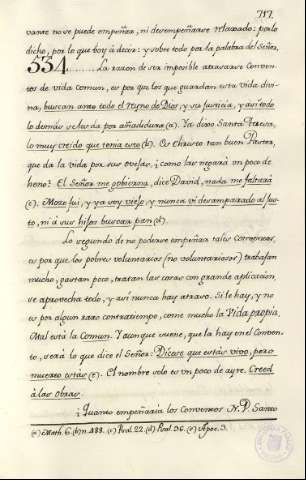 717.
vante no se puede empeñar, ni desempeñarse relaxado: por lo
dicho, por lo que boy à decir: y sobre todo por la palabra del Señor.
534 La razon de ser imposible atrasarse Conven-
tos de vida comun, es por que los que guardan esta vida divi-
na, buscan ante todo el Reyno de Dios, y su Justicia, y asi todo
lo demàs se les da por añadidura (a). Ya dixo Santa Teresa,
lo muy creido que tenia esto (b). Es Christo tan buen Pastor,
que da la vida por sus ovejas, ¿como las negarà un poco de
heno? El Señor me gobierna, dice David, nada me faltarà
(c). Mozo fui, y ya soy viejo, y nunca vi desamparado al Jus-
to, ni à sus hijos buscar pan (d).
Lo segundo de no poderse empeñar tales Conventos,
es por que los pobres voluntarios (no voluntariosos) trabajan
mucho, gastan poco, tratan las cosas con grande aplicacion,
se aprovecha todo, y asi nunca hay atraso. Si le hay, y no
es por algun raro contratiempo, come mucho la Vida propia.
Mal està la Comun. Y aunque suene, que la hay en el Conven-
to, serà lo que dice el Señor: Dicese que estàs vivo, pero
muerto estàs (e). El nombre solo es un poco de ayre. Creed
à las obras.
¡Quanto empeñaria los Conventos N. P. Santo
(a) Math. 6. (b) n. 488. (c) Psal. 22. (d) Psal. 36. (e) Apoc. 3.